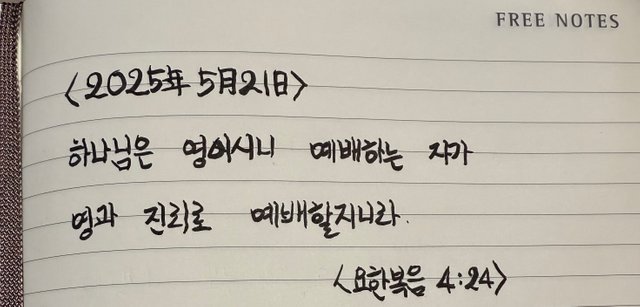 FREE NOTES
<2025年 5月21日>
하나님은 영이시니 예배하는 자가
영과 진리로 예배할지니라.
<요한복음 4:24>